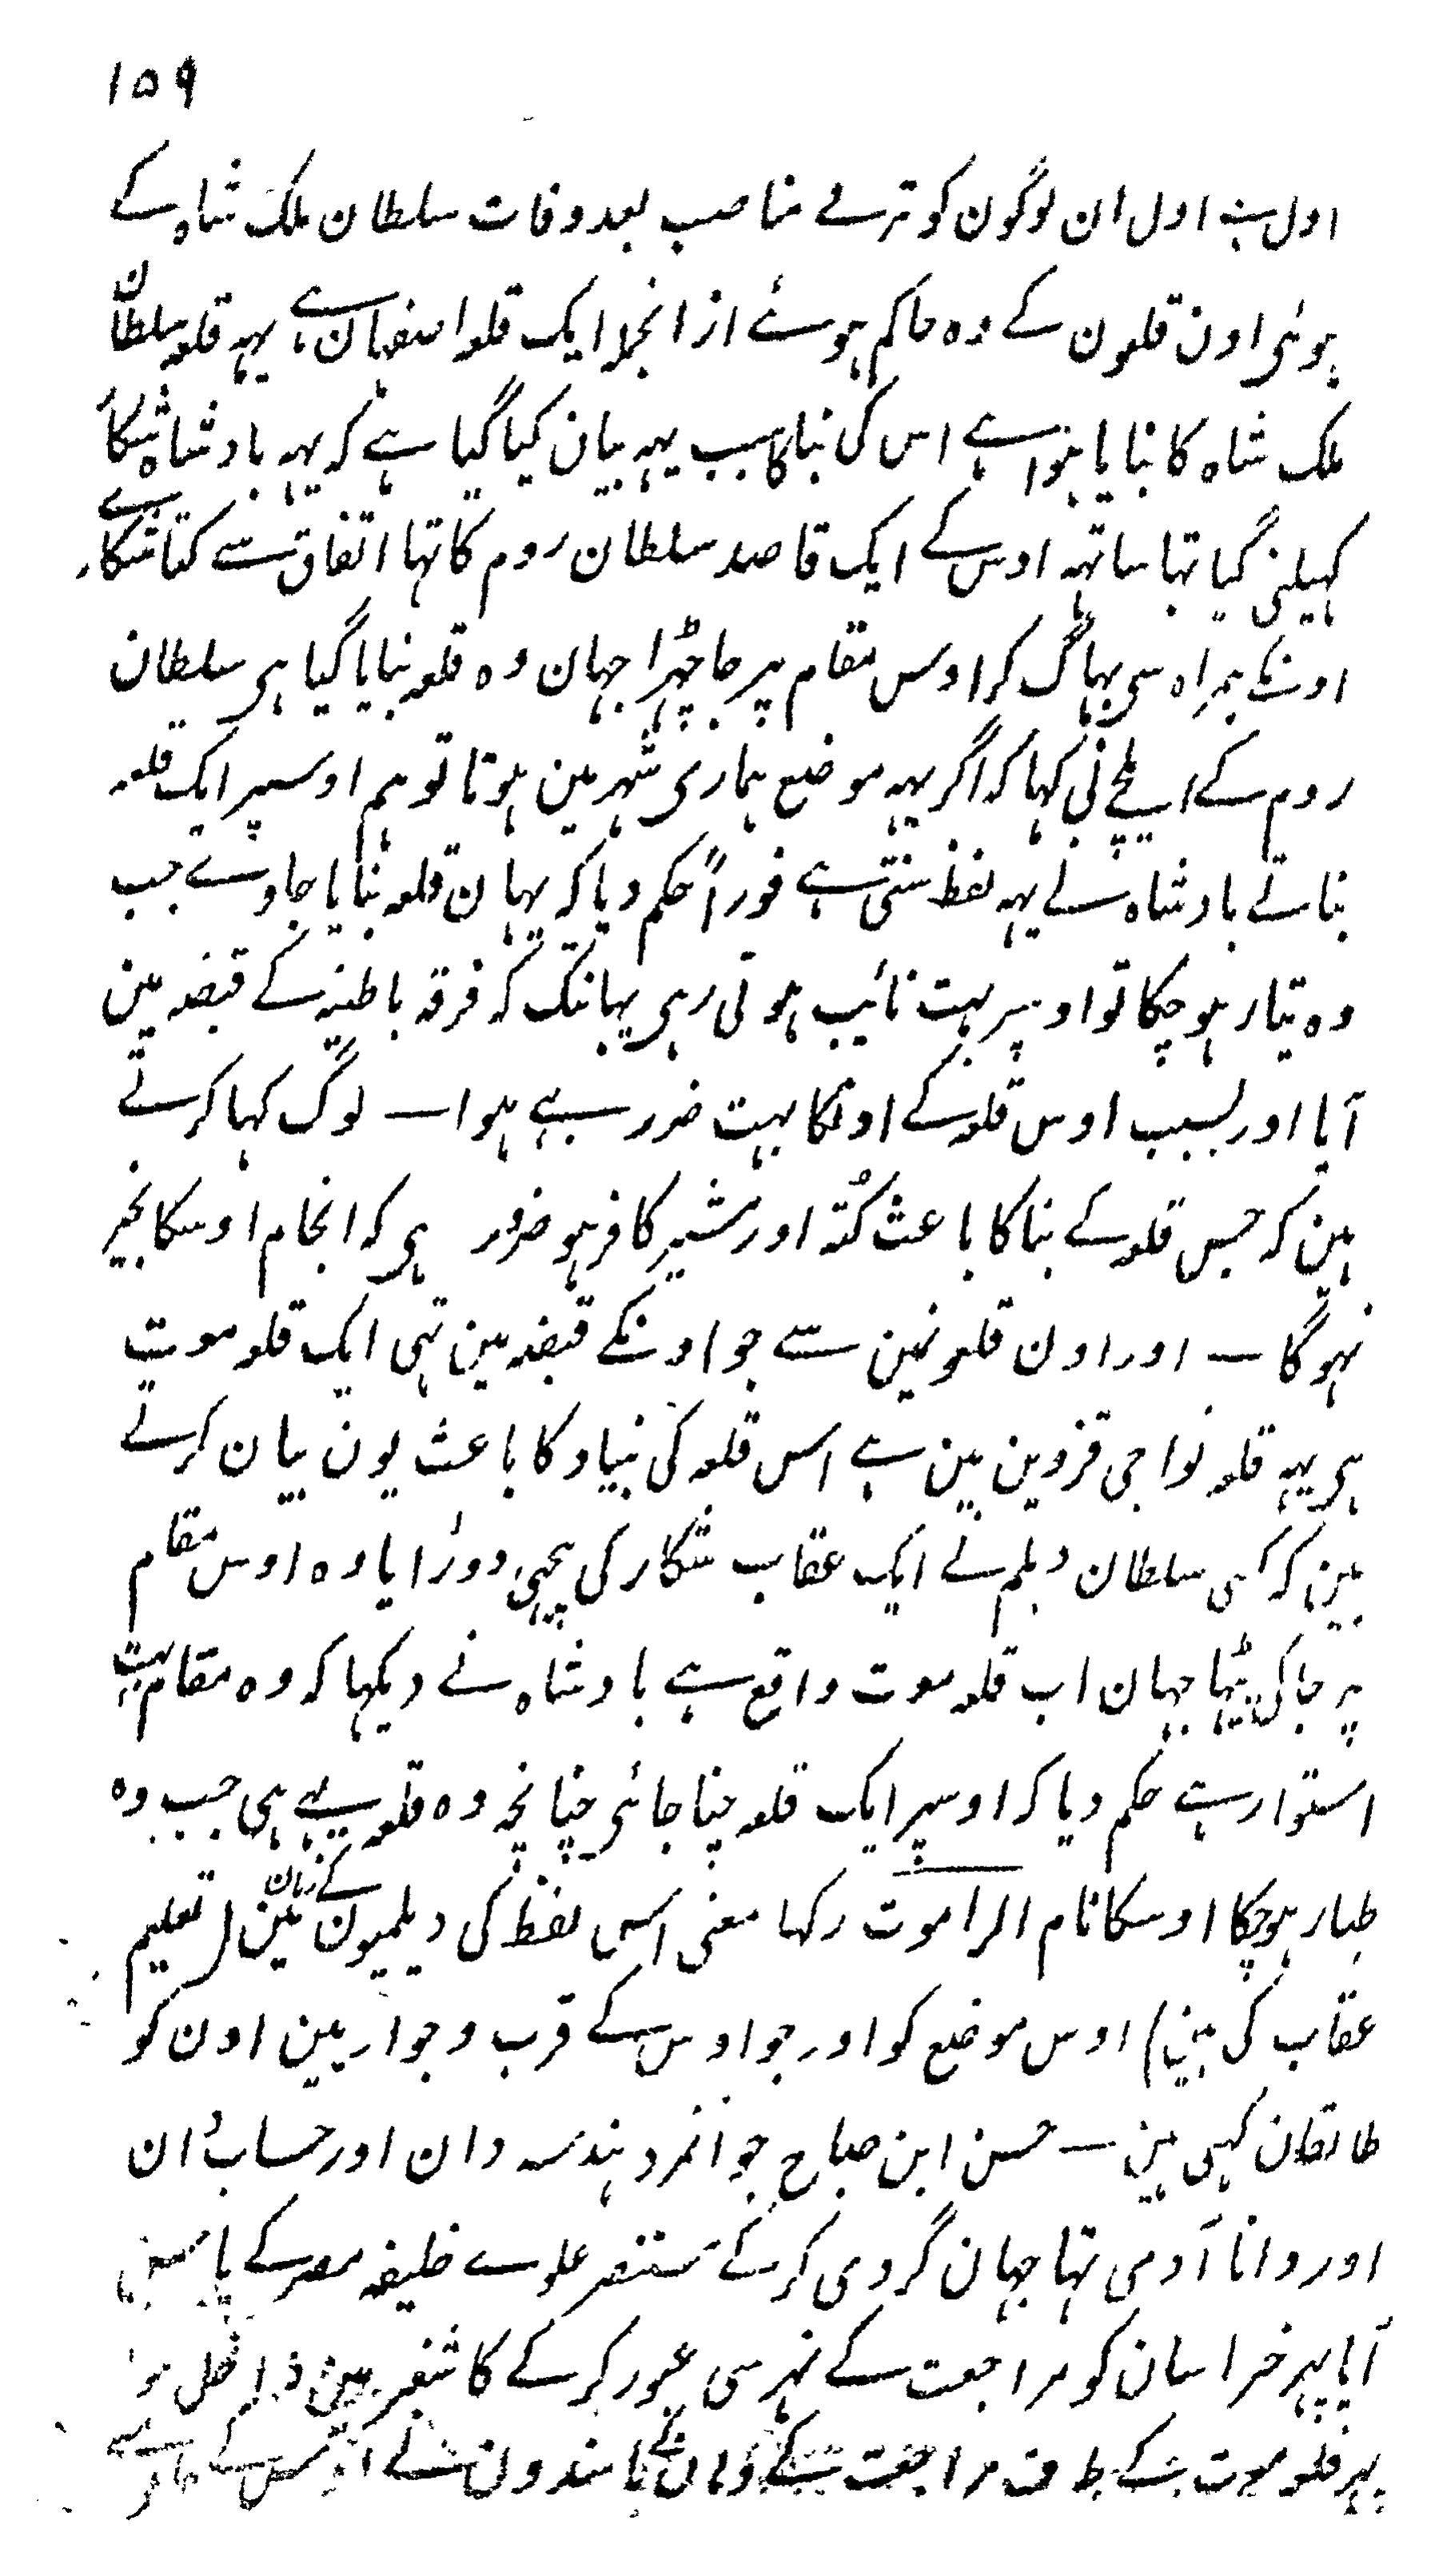 ۱۵۹
اول ہی اول ان لوگون کو ترقے مناصب بعد وفات سلطان ملک شاہ کے
ہوئی اون قلعون کے وہ حاکم ہوئے ازانجملہ ایک قلعہ اصفہان ہے یہہ قلعہ سلطان
ملک شاہ کا بنایا ہوا ہے اس کی بنا کا سبب یہہ بیان کیا گیا ہے کہ یہہ بادشاہ شکار
کہیلنی گیا تہا ساتہہ اوس کے ایک قاصد سلطان روم کا تہا اتفاق سے کتا شکاری
اونکے ہمراہ سی بہاگ کر اوس مقام پر جا چہڑا جہان وہ قلعہ بنایا گیا ہی سلطان
روم کے ایلچے نی کہا کہ اگر یہہ موضع ہماری شہر مین ہوتا تو ہم اوسپر ایک قلعہ
بناتے بادشاہ نے یہہ لفظ سنتی ہے فوراً حکم دیا کہ یہان قلعہ بنایا جاوے جب
وہ تیار ہو چکا تو اوسپر بہت نائب ہوتی رہی یہانتک کہ فرقہ باطنیہ کے قبضہ مین
آیا اور بسبب اوس قلعہ کے اونکا بہت ضرر بہے ہوا — لوگ کہا کرتے
ہین کہ جس قلعہ کے بنا کا باعث کتہ اور مشیر کافر ہو ضرور ہی کہ انجام اوسکا بخیر
نہوگا — اور اون قلعونمین سے جو اونکے قبضہ مین تہی ایک قلعہ موت
ہی یہہ قلعہ نواحی قزوین مین ہے اس قلعہ کی بنیاد کا باعث یون بیان کرتے
ہین کہ کسی سلطان دیلم نے ایک عقاب شکار کی پیچہی دوڑایا وہ اوس مقام
پر جاکی بیٹہا جہان اب قلعہ موت واقع ہے بادشاہ نے دیکہا کہ وہ مقام بہت
استوار ہے حکم دیا کہ اوسپر ایک قلعہ چنا جائی چنانچہ وہ قلعہ یہے ہی جب وہ
طیار ہوچکا اوسکا نام الراموت رکہا معنی اس لفظ کی دیلمیون کے زبان مین (تعلیم
عقاب کی ہین) اوس موضع کو اور جو اوس کے قرب و جوار ہین اون کو
طالقان کہی ہین — حسن ابن صباح جوانمرد ہندسہ دان اور حساب دان
اور دانا آدمی تہا جہان گردی کرکے مستنصر علوے خلیفہ مصر کے پاس مین
آیا پہر خراسان کو مراجعت کے نہر سی عبور کرکے کاشغر مین داخل ہو
پہر قلعہ موت کے طرف مراجعت کے وہان کے باشندون نے اوس کے